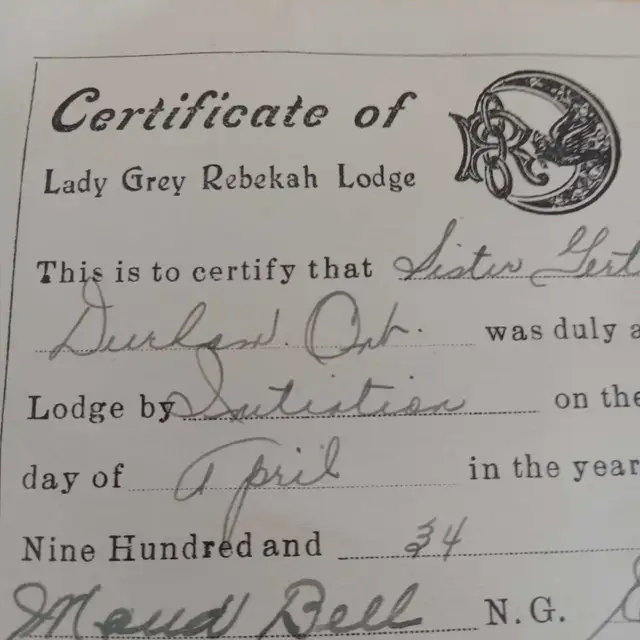 Certificate of
Lady Grey Rebekah Lodge
This is to certify that Sister Gert
Durham. Ont. was duly a
Lodge by Initiation on the
day of April in the year
Nine Hundred and 34
Maud Bell N.G.